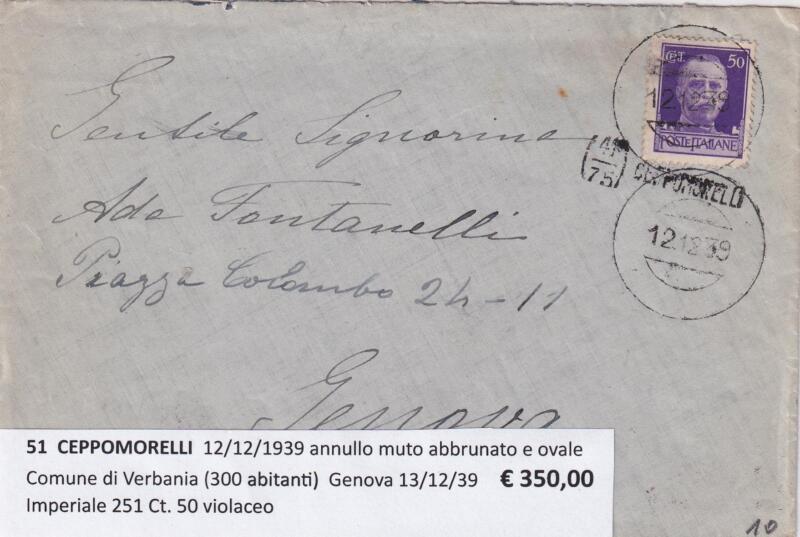 Gentile Signorina
Ada Fontanelli
Piazza Colombo 24-11
Genova
CENT. 50
POSTE ITALIANE
12.12.39
41
75
CEPPOMORELLI
12.12.39
51 CEPPOMORELLI 12/12/1939 annullo muto abbrunato e ovale
Comune di Verbania (300 abitanti) Genova 13/12/39 € 350,00
Imperiale 251 Ct. 50 violaceo
10